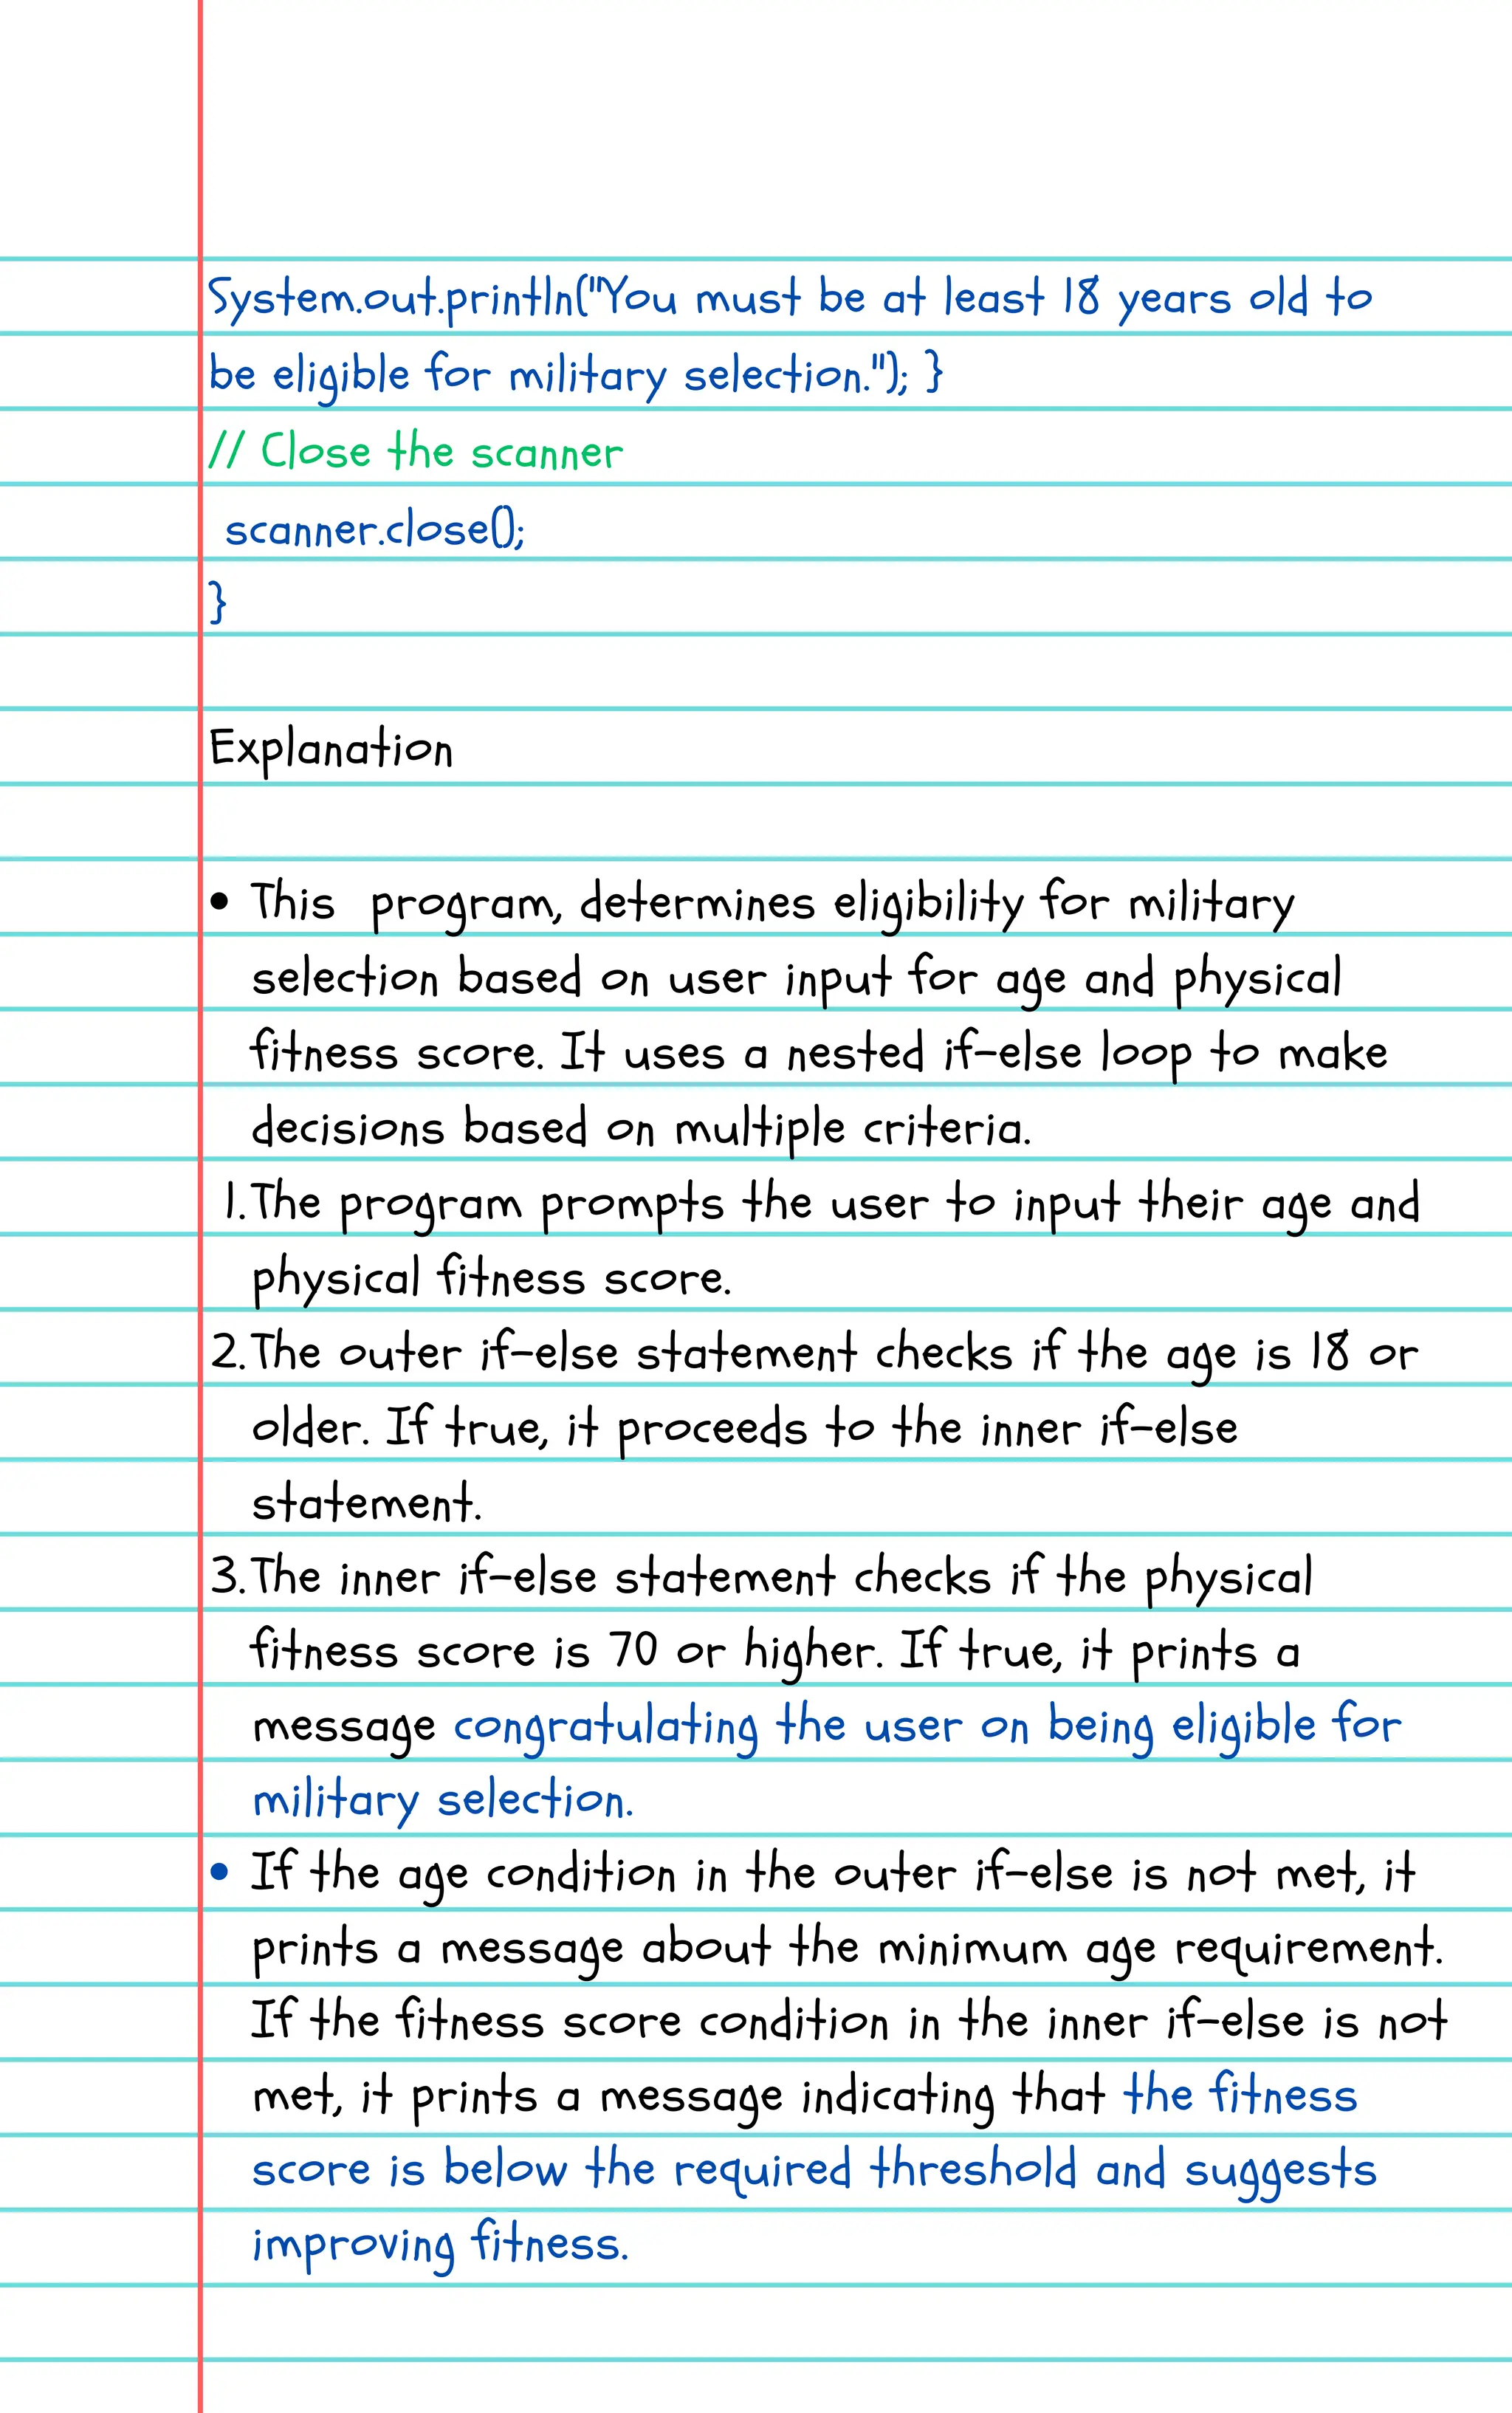 System.out.println("You must be at least 18 years old to
be eligible for military selection."); }
// Close the scanner
scanner.close();
}
Explanation
• This program, determines eligibility for military
selection based on user input for age and physical
fitness score. It uses a nested if-else loop to make
decisions based on multiple criteria.
1. The program prompts the user to input their age and
physical fitness score.
2. The outer if-else statement checks if the age is 18 or
older. If true, it proceeds to the inner if-else
statement.
3. The inner if-else statement checks if the physical
fitness score is 70 or higher. If true, it prints a
message congratulating the user on being eligible for
military selection.
• If the age condition in the outer if-else is not met, it
prints a message about the minimum age requirement.
If the fitness score condition in the inner if-else is not
met, it prints a message indicating that the fitness
score is below the required threshold and suggests
improving fitness.